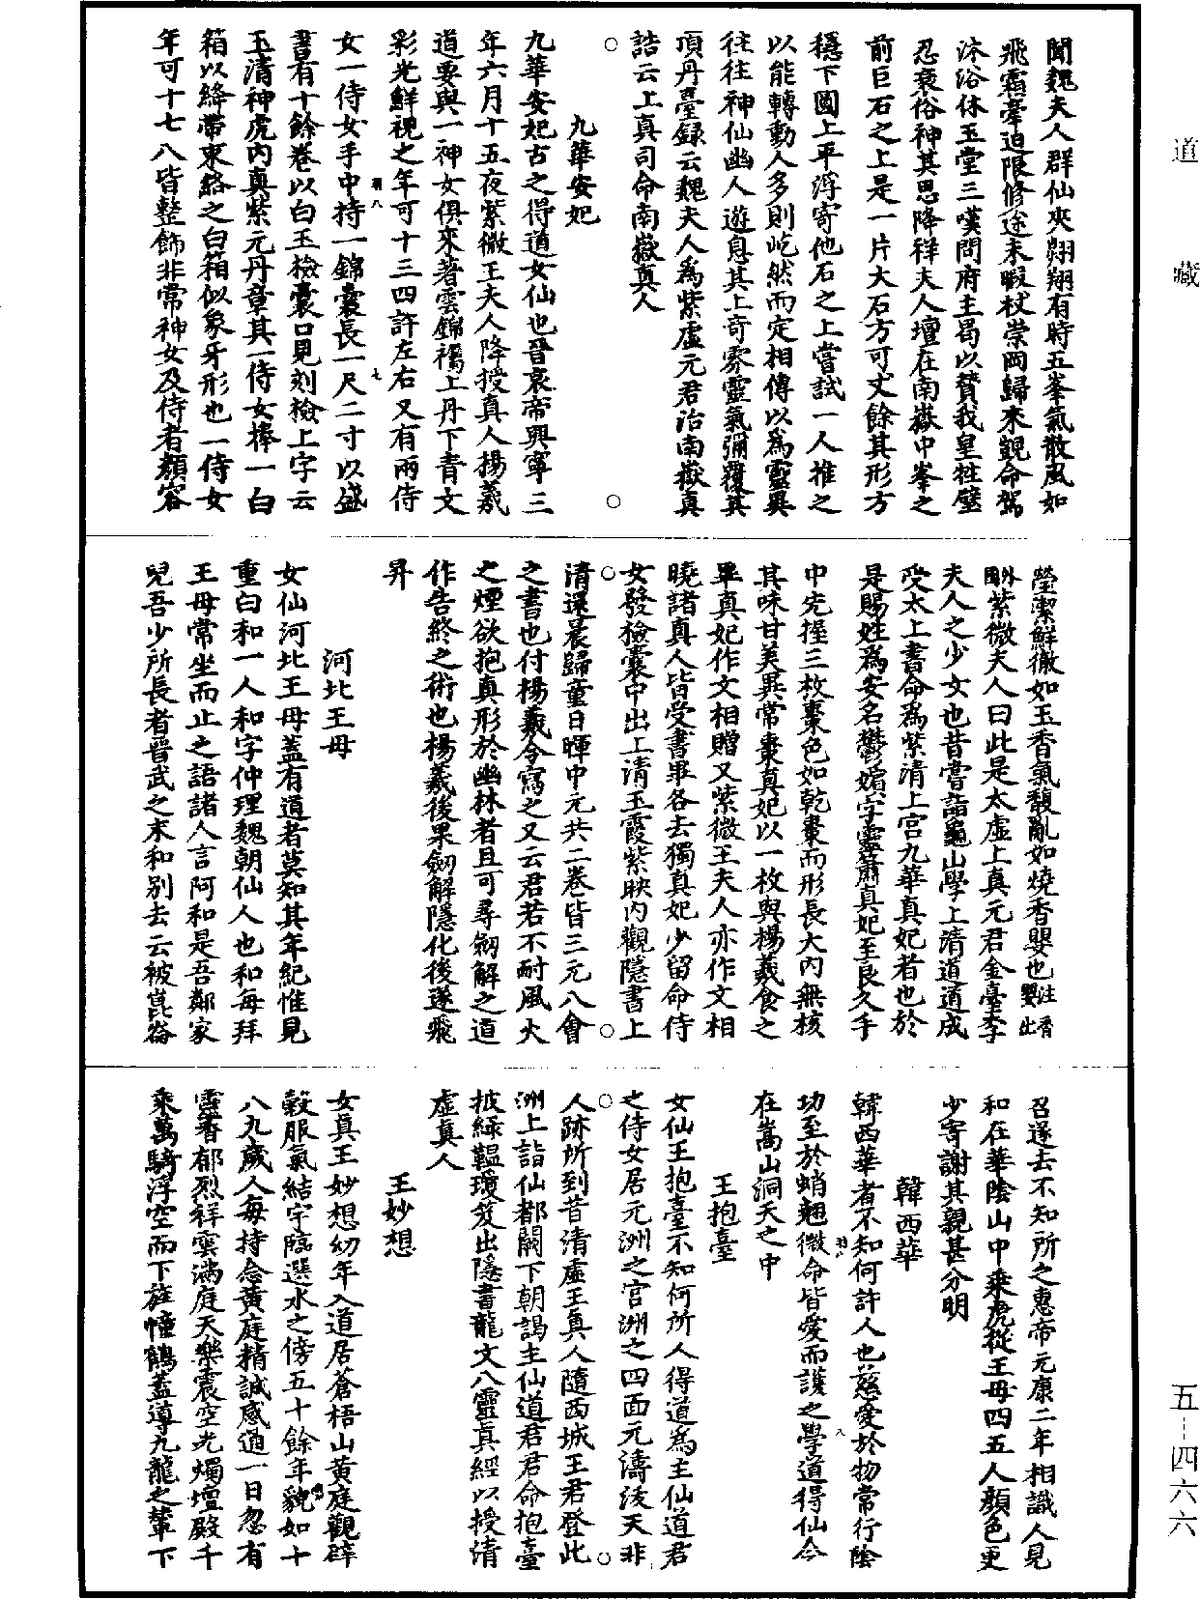 道藏
五-四六六
聞魏夫人群仙夾翱翔有時五峯氣散風如
飛霜牽迫限修途未暇杖崇岡歸來覩命駕
沐浴休玉堂三嘆問府主曷以贊我皇牲璧
忍褻俗神其思降祥夫人壇在南嶽中峯之
前巨石之上是一片大石方可丈餘其形方
穩下圓上平浮寄他石之上嘗試一人推之
以能轉動人多則屹然而定相傳以為靈異
往往神仙幽人遊息其上奇雰靈氣彌覆其
頂丹臺錄云魏夫人為紫虛元君治南嶽真
誥云上真司命南嶽真人
九華安妃
九華安妃古之得道女仙也晉哀帝興寧三
年六月十五夜紫微王夫人降授真人楊羲
道要與一神女俱來著雲錦襡上丹下青文
彩光鮮視之年可十三四許左右又有兩侍
女一侍女手中持一錦囊長一尺二寸以盛
書有十餘卷以白玉檢囊口見刻檢上字云
玉清神虎內真紫元丹章其一侍女捧一白
箱以絳帶束絡之白箱似象牙形也一侍女
年可十七八皆整飾非常神女及侍者顏容
瑩潔鮮徹如玉香氣馥亂如燒香嬰也注香嬰出
外國紫微夫人曰此是太虛上真元君金臺李
夫人之少女也昔嘗詣龜山學上清道道成
受太上書命為紫清上宮九華真妃者也於
是賜姓為安名鬱嬪字靈簫真妃至良久手
中先握三枚棗色如乾棗而形長大內無核
其味甘美異常棗真妃以一枚與楊羲食之
畢真妃作文相贈又紫微王夫人亦作文相
曉諸真人皆受書畢各去獨真妃少留命侍
女發檢囊中出上清玉霞紫映內觀隱書上
清還晨歸童日暉中元共二卷皆三元八會
之書也付楊羲令寫之又云君若不耐風火
之煙欲抱真形於幽林者且可尋劒解之道
作告終之術也楊羲後果劒解隱化後遂飛
昇
河北王母
女仙河北王母蓋有道者莫知其年紀惟見
重白和一人和字仲理魏朝仙人也和每拜
王母常坐而止之語諸人言阿和是吾鄰家
兒吾少所長者晉武之末和別去云被崑崙
召遂去不知所之惠帝元康二年相識人見
和在華陰山中乘虎從王母四五人顏色更
少寄謝其親甚分明
韓西華
韓西華者不知何許人也慈愛於物常行陰
功至於蛸翹微命皆愛而護之學道得仙今
在嵩山洞天之中
王抱臺
女仙王抱臺不知何所人得道為主仙道君
之侍女居元洲之宮洲之四面元濤浚天非
人跡所到昔清虛王真人隨西城王君登此
洲上詣仙都闕下朝謁主仙道君君命抱臺
披綠韞瓊笈出隱書龍文八靈真經以授清
虛真人
王妙想
女真王妙想幼年入道居蒼梧山黃庭觀辟
穀服氣結宇臨選水之傍五十餘年貌如十
八九歲人每持念黃庭精誠感通一日忽有
靈香郁烈祥雲滿庭天樂震空光燭壇殿千
乘萬騎浮空而下旌幢鶴蓋導九龍之輦下